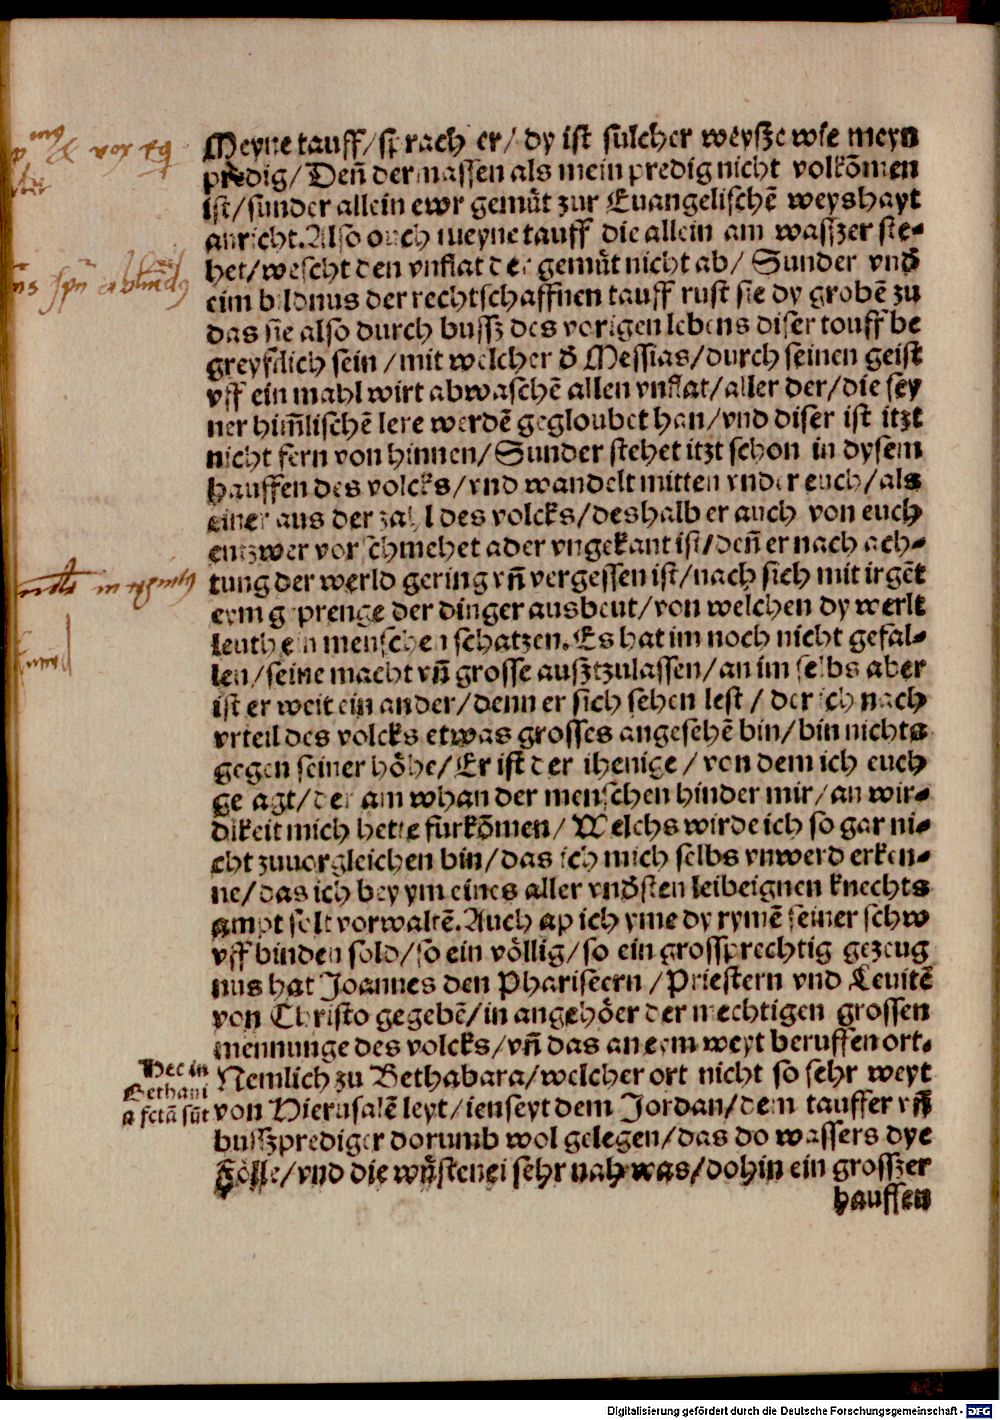 Meyne tauff/sprach er/ dy ist sülcher weysze wie meyn
predig/ Deñ dermassen als mein predig nicht volkõmen
ist/sunder allein ewr gemüt zur Euangelischẽ weyshayt
anricht. Also ouch meyne tauff die allein am wasszer ste-
het/wescht den vnflat der gemüt nicht ab/ Sunder vnð
eim bildnus der rechtschaffnen tauff rust sie dy grobẽ zu
das sie also durch bussz des vorigen lebens diser touff be
greyflich sein /mit welcher ð Messias/durch seinen geist
vff ein mahl wirt abwaschẽ allen vnflat/aller der/die sey
ner him̃lischẽ lere werdẽ gegloubet han/vnd diser ist itzt
nicht fern von hinnen/Sunder stehet itzt schon in dysem
hauffen des volcks/vnd wandelt mitten vnder euch/als
einer aus der zahl des volcks/deshalb er auch von euch
entzwer vorschmehet ader vngekant ist/deñ er nach ach-
tung der werld gering vñ vergessen ist/nach sich mit irgẽt
eym g prenge der dinger ausbeut/von welchen dy werlt
leuth ein menschen schatzen. Es hat im noch nicht gefal-
len/seine macht vñ grosse ausztzulassen/an im selbs aber
ist er weit ein ander/denn er sich sehen lest / der ich nach
vrteil des volcks etwas grosses angesehẽ bin/bin nichts
gegen seiner höhe/Er ist der ihenige /von dem ich euch
ge agt/der am whan der menschen hinder mir/an wir-
dikeit mich hette fürkõmen/ Welchs wirde ich so gar ni-
cht zuuorgleichen bin/das ich mich selbs vnwerd erken-
ne/das ich bey ym eines aller vnðsten leibeignen knechts
ampt solt vorwaltẽ. Auch ap ich yme dy rymẽ seiner schw
vff binden sold/so ein völlig/so ein grossprechtig gezeug
nus hat Joannes den Phariseern /Priestern vnd Leuitẽ
von Christo gegebẽ/in angehöer der mechtigen grossen
mennunge des volcks/vñ das an eym weyt beruffen ort.
Hec in
Bethani
a fctã sũt
Nemlich zu Bethabara/welcher ort nicht so sehr weyt
von Hierusalẽ leyt/ienseyt dem Jordan/dem tauffer vñ
busszprediger dorumb wol gelegen/das do wassers dye
Fölle/vnd die wüstenei sehr nah was/dohin ein grosszer
hauffen
Digitalisierung gefördert durch die Deutsche Forschungsgemeinschaft - DFG